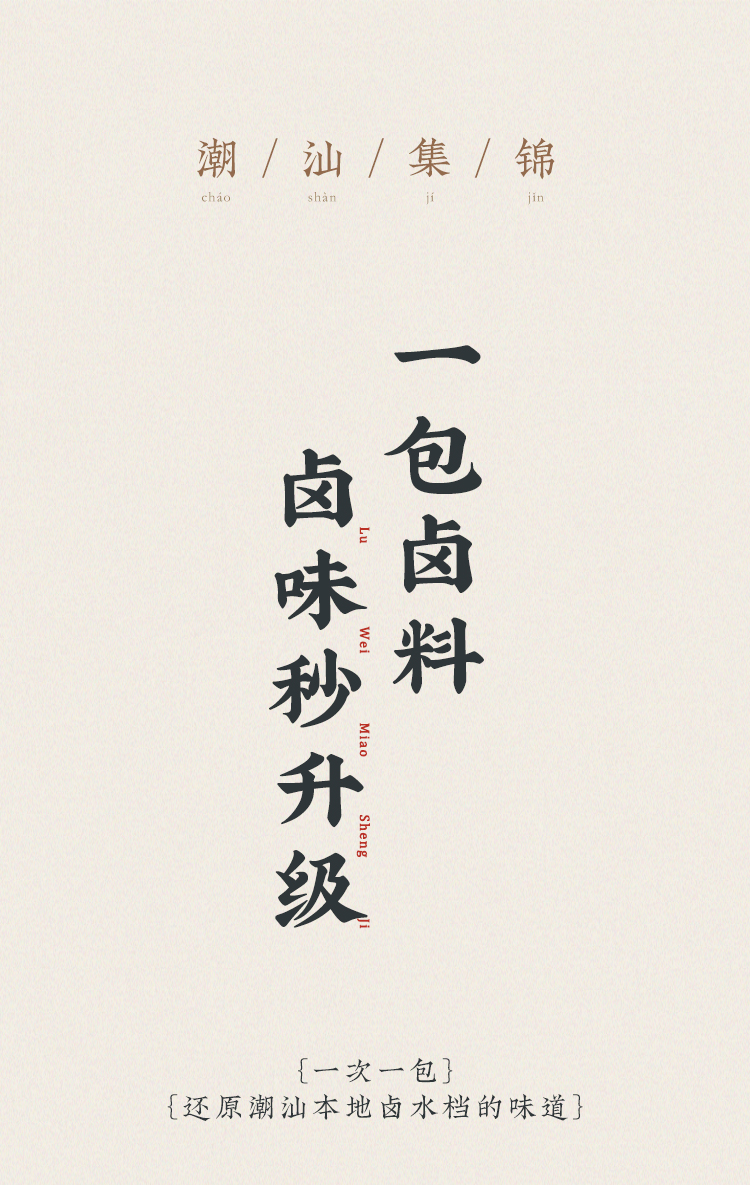 潮/汕/集/锦
cháo shàn jí jǐn
一包卤料
卤味秒升级
Lu Wei Miao Sheng Ji
{一次一包}
{还原潮汕本地卤水档的味道}